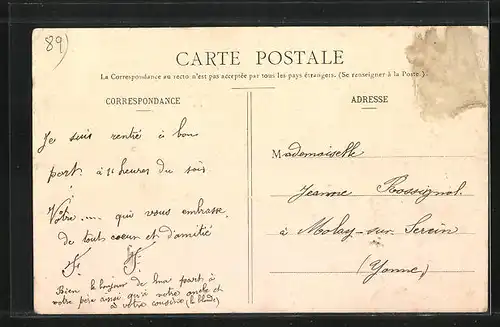 89)
CARTE POSTALE
La Correspondance au recto n'est pas acceptée par tous les pays étrangers. (Se renseigner à la Poste.)
CORRESPONDANCE
Je suis rentré à bon
port à 11 heures du soir
Votre .... qui vous embrasse
de tout coeur et d'amitié
Bien le bonjour de ma part à
votre père ainsi qu'à votre oncle et
à votre cousine (la blonde)
ADRESSE
Mademoiselle
Jeanne Rossignol
à Molay-sur-Serein
(Yonne)